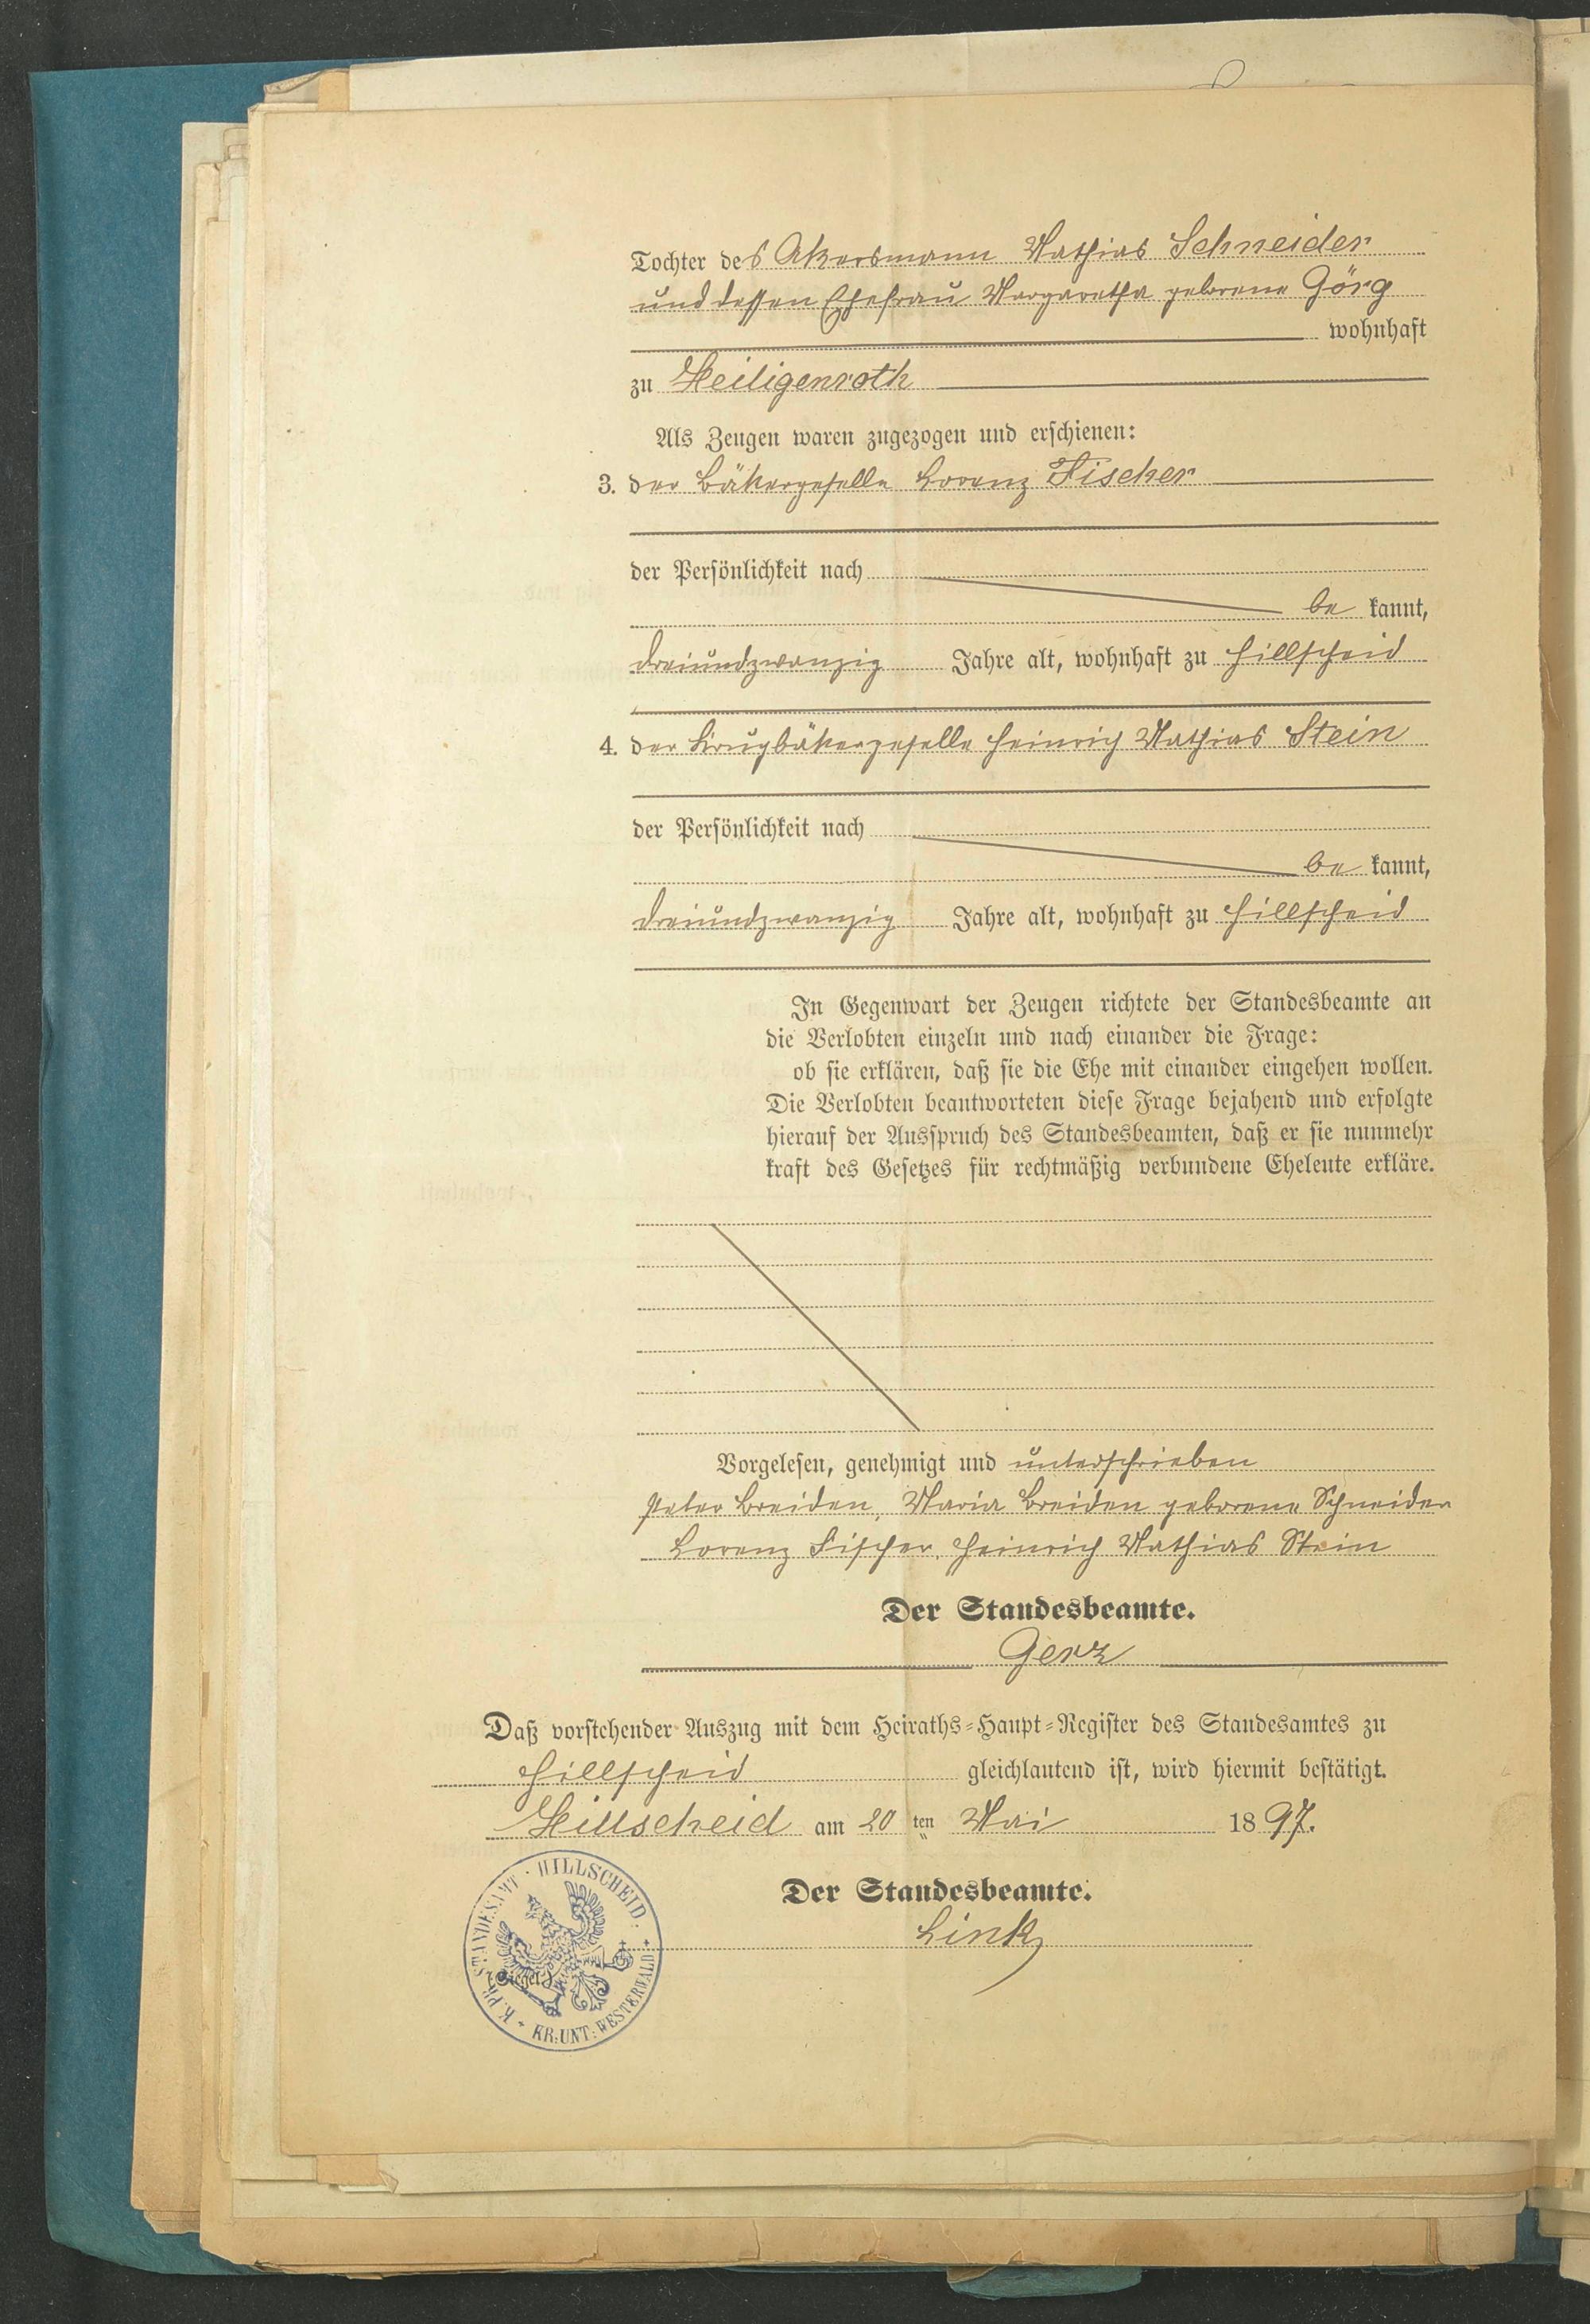 Tochter des Akersmann Mathias Schneider
und dessen Ehefrau Margaretha geborene Görg
wohnhaft
zu Heiligenroth
Als Zeugen waren zugezogen und erschienen:
3. der Bäkergeselle Lorenz Fischer
der Persönlichkeit nach
be kannt,
dreiundzwanzig Jahre alt, wohnhaft zu Hillscheid
4. der Krugbäkergeselle Heinrich Mathias Stein
der Persönlichkeit nach
be kannt,
dreiundzwanzig Jahre alt, wohnhaft zu Hillscheid
In Gegenwart der Zeugen richtete der Standesbeamte an
die Verlobten einzeln und nach einander die Frage:
ob sie erklären, daß sie die Ehe mit einander eingehen wollen.
Die Verlobten beantworteten diese Frage bejahend und erfolgte
hierauf der Ausspruch des Standesbeamten, daß er sie nunmehr
kraft des Gesetzes für rechtmäßig verbundene Eheleute erkläre.
Vorgelesen, genehmigt und unterschrieben
Peter Breiden, Maria Breiden geborene Schneider
Lorenz Fischer, Heinrich Mathias Stein
Der Standesbeamte.
Gerz
Daß vorstehender Auszug mit dem Heiraths-Haupt-Register des Standesamtes zu
Hillscheid gleichlautend ist, wird hiermit bestätigt.
Hillscheid am 20 ten Mai 1897.
Der Standesbeamte.
Link
K. PR. STANDESAMT · HILLSCHEID.
(Siegel.)
KR: UNT: WESTERWALD